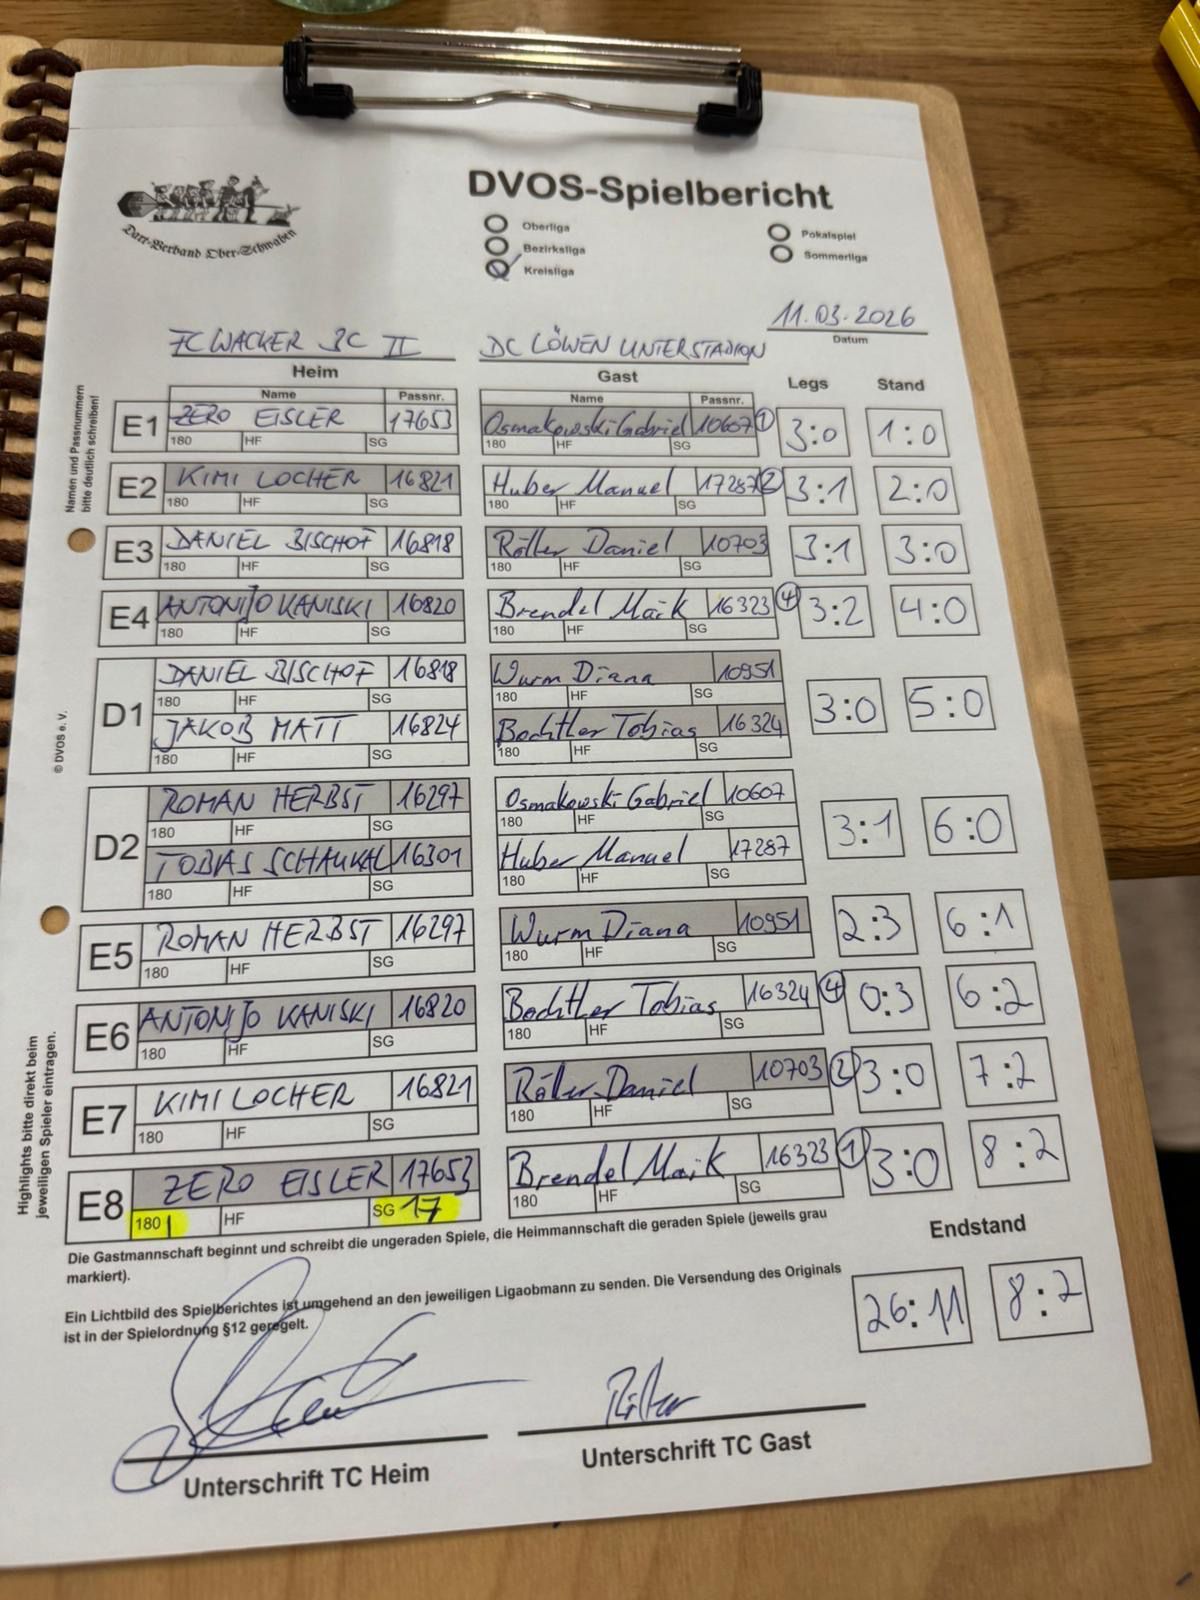 Dart-Verband Ober-Schwaben
DVOS-Spielbericht
Oberliga
Bezirksliga
Kreisliga
Pokalspiel
Sommerliga
11.03.2026
Datum
FC WACKER BC II DC LÖWEN UNTERSTADION
Heim Gast Legs Stand
Name Passnr. Name Passnr.
Namen und Passnummern
bitte deutlich schreiben!
E1 ZERO EISLER 17653 Osmakowski Gabriel 10607 1 3:0 1:0
180 HF SG 180 HF SG
E2 KIMI LOCHER 16821 Huber Manuel 17287 2 3:1 2:0
180 HF SG 180 HF SG
E3 DANIEL BISCHOF 16818 Daniel 10703 3:1 3:0
180 HF SG 180 HF SG
E4 ANTONIJO KANISKI 16820 Brendel Maik 16323 4 3:2 4:0
180 HF SG 180 HF SG
DANIEL BISCHOF 16818 Wurm Diana 10951
180 HF SG 180 HF SG
D1 3:0 5:0
JAKOB MATT 16824 Bochtler Tobias 16324
180 HF SG 180 HF SG
© DVOS e. V.
ROMAN HERBST 16297 Osmakowski Gabriel 10607
180 HF SG 180 HF SG
D2 3:1 6:0
TOBIAS SCHAUKAL 16301 Huber Manuel 17287
180 HF SG 180 HF SG
E5 ROMAN HERBST 16297 Wurm Diana 10951 2:3 6:1
180 HF SG 180 HF SG
E6 ANTONIJO KANISKI 16820 Bochtler Tobias 16324 4 0:3 6:2
180 HF SG 180 HF SG
E7 KIMI LOCHER 16821 Daniel 10703 2 3:0 7:2
180 HF SG 180 HF SG
E8 ZERO EISLER 17653 Brendel Maik 16323 1 3:0 8:2
180 | HF SG 17 180 HF SG
Highlights bitte direkt beim
jeweiligen Spieler eintragen.
Die Gastmannschaft beginnt und schreibt die ungeraden Spiele, die Heimmannschaft die geraden Spiele (jeweils grau
markiert).
Endstand
Ein Lichtbild des Spielberichtes ist umgehend an den jeweiligen Ligaobmann zu senden. Die Versendung des Originals
ist in der Spielordnung §12 geregelt.
26:11 8:2
Unterschrift TC Heim Unterschrift TC Gast